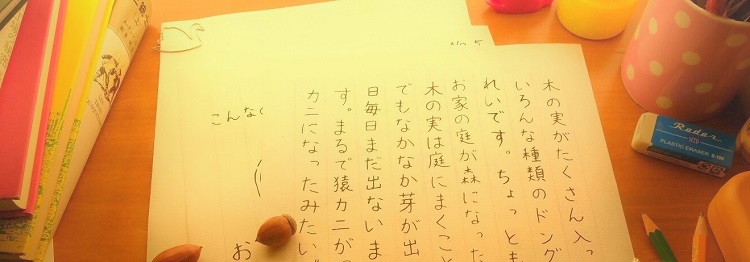 木の実がたくさん入っ
いろんな種類のドング
れいです。ちょっとも
お家の庭が森になった
木の実は庭にまくこと
でもなかなか芽が出
日毎日まだ出ないま
す。まるで猿カニが
カニになったみたい。
こんなく
お
Radar
PLASTIC ERASER S-100